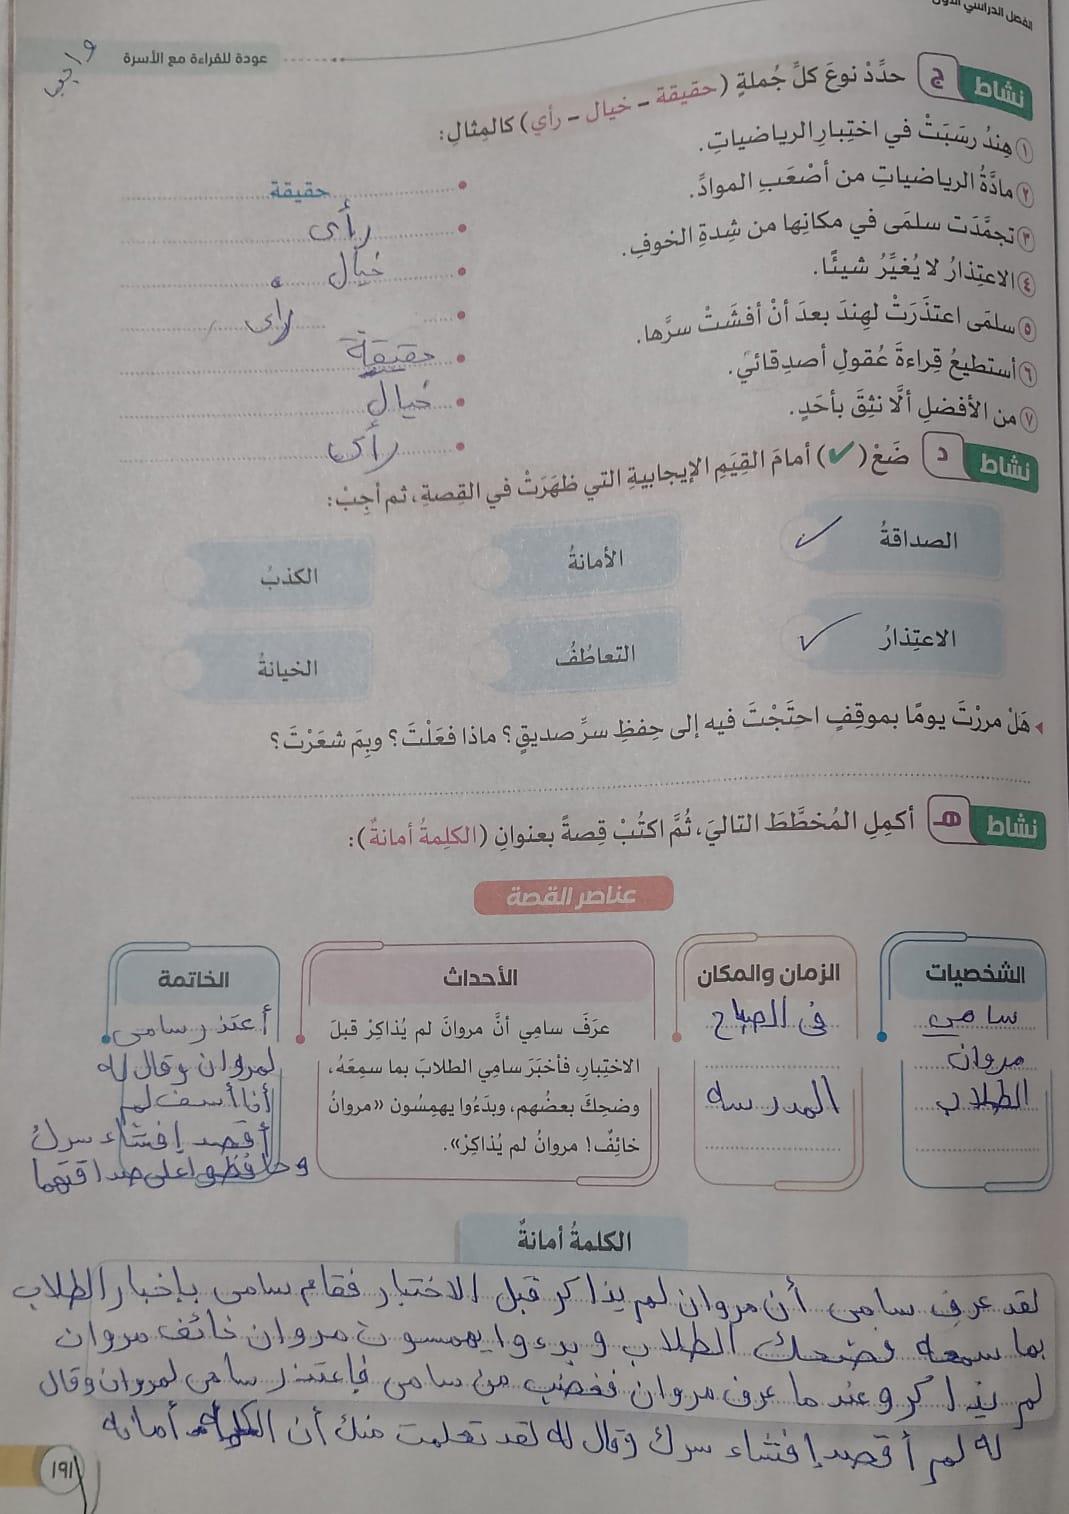 الفصل الدراسي الأول
عودة للقراءة مع الأسرة
نشاط ج حدِّدْ نوعَ كلِّ جُملةٍ (حقيقة - خيال - رأي) كالمِثالِ:
١ هِندُ رسَبَتْ في اختِبارِ الرياضياتِ.
حقيقة
٢ مادَّةُ الرياضياتِ من أصْعَبِ الموادِّ.
رأى
٣ تجمَّدَت سلمَى في مكانِها من شِدةِ الخوفِ.
خيال
٤ الاعتِذارُ لا يُغيِّرُ شيئًا.
راى
٥ سلمَى اعتذَرَتْ لهِندَ بعدَ أنْ أفشَتْ سرَّها.
حقيقة
٦ أستطيعُ قِراءةَ عُقولِ أصدِقائي.
خيال
٧ من الأفضلِ ألَّا نثِقَ بأحَدٍ.
رأى
نشاط د ضَعْ (✓) أمامَ القِيَمِ الإيجابيةِ التي ظهَرَتْ في القِصةِ، ثم أجِبْ:
الصداقةُ ✓ الأمانةُ الكذبُ
الاعتِذارُ ✓ التعاطُفُ الخيانةُ
هَلْ مررْتَ يومًا بموقِفٍ احتَجْتَ فيه إلى حِفظِ سرِّ صديقٍ؟ ماذا فعَلْتَ؟ وبِمَ شعَرْتَ؟
نشاط هـ أكمِلِ المُخطَّطَ التاليَ، ثُمَّ اكتُبْ قِصةً بعنوانِ (الكلِمةُ أمانةٌ):
عناصر القصة
الشخصيات
سامى
مروان
الطلاب
الزمان والمكان
فى الصباح
المدرسه
الأحداث
عرَفَ سامِي أنَّ مروانَ لم يُذاكِرْ قبلَ
الاختِبارِ، فأخبَرَ سامِي الطلابَ بما سمِعَهُ،
وضحِكَ بعضُهم، وبدَءُوا يهمِسُون «مروانُ
خائِفٌ! مروانُ لم يُذاكِرْ».
الخاتمة
أعتذر سامى
لمروان وقال له
أنا أسف لم
أقصد إفشاء سرك
وحافظوا على صداقتهما
الكلمةُ أمانةٌ
لقد عرف سامى أن مروان لم يذاكر قبل الاختبار فقام سامى بإخبار الطلاب
بما سمعه فضحك الطلاب وبدءوا يهمسون مروان خائف مروان
لم يذاكر وعند ما عرف مروان فغضب من سامى فإعتذر سامى لمروان وقال
له لم أقصد إفشاء سرك وقال له لقد تعلمت منك أن الكلمه أمانه
١٩١